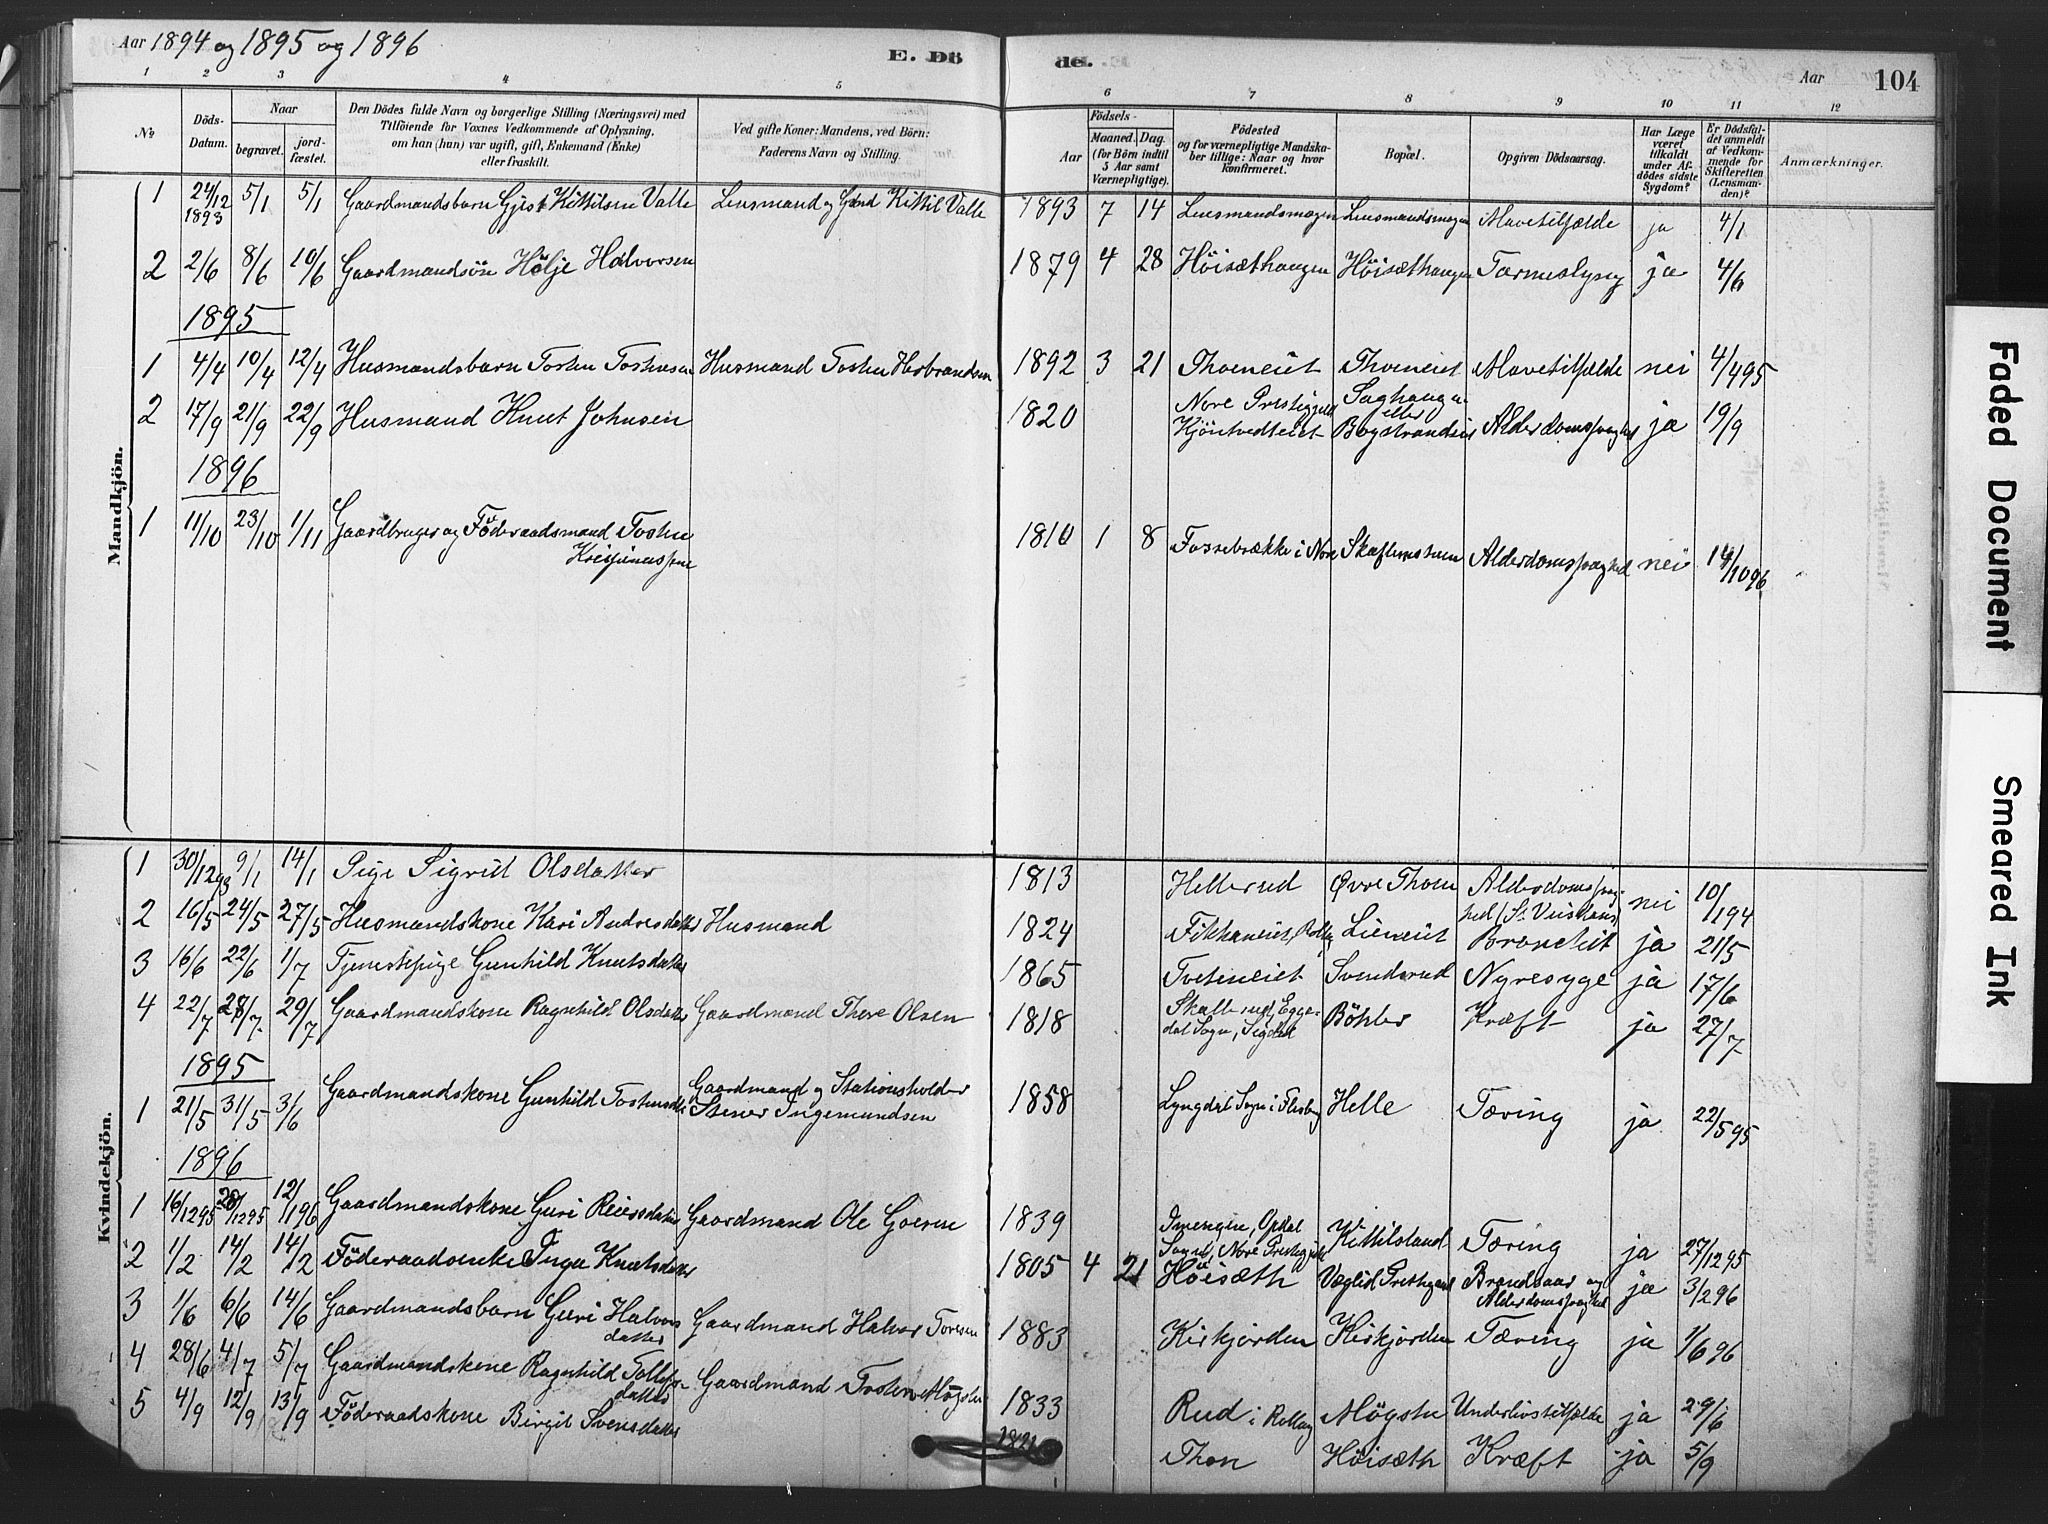 Aar 1894 og 1895 og 1896
E. Dö
de.
Aar
104
1 2 3 4 5 6 7 8 9 10 11 12
No
Döds-
Datum.
Naar
begravet.
jord-
fæstet.
Den Dödes fulde Navn og borgerlige Stilling (Næringsvei) med
Tilföiende for Voxnes Vedkommende af Oplysning,
om han (hun) var ugift, gift, Enkemand (Enke)
eller fraskilt.
Ved gifte Koner: Mandens, ved Börn:
Faderens Navn og Stilling.
Födsels-
Aar
Maaned.
Dag.
(for Börn indtil
5 Aar samt
Værnepligtige).
Födested
og for værnepligtige Mandska-
ber tillige: Naar og hvor
konfirmeret.
Bopæl.
Opgiven Dödsaarsag.
Har Læge
været
tilkaldt
under Af-
dödes sidste
Sygdom?
Er Dödsfal-
det anmeldt
af Vedkom-
mende for
Skifteretten
(Lensman-
den)?
Anmærkninger.
Mandkjön.
1 24/12 1893 5/1 5/1 Gaardmandsbarn Kittilsen Valle Lensmand og Kittil Valle 1893 7 14 Lensmandsmogen Lensmandsmogen Mavetilfælde ja 4/1
2 2/6 8/6 10/6 Gaardmandsön Hölje Halvorsen 1879 4 28 Höisæthaugen Höisæthaugen Tarmeslyng ja 4/6
1895
1 4/4 10/4 12/4 Husmandsbarn Tosten Tostensen Husmand Tosten Herbrandsen 1892 3 21 Thoeneiet Thoeneiet Mavetilfælde nei 4/4 95
2 17/9 21/9 22/9 Husmand Knut Johnsen 1820 Nore Prestegjeld Kjöntvedteiet Saghaugen eller Alderdomssvaghed ja 19/9
1896
1 11/10 23/10 1/11 Gaardbruger og Föderaadsmand Tosten 1810 1 8 Fossebrække i Nore Alderdomssvaghed nei 14/10 96
Kvindekjön.
1 30/12 93 9/1 14/1 Pige Sigrid Olsdatter 1813 Hellerud Øvre Thoen Alderdomssvag-
hed nei 10/1 94
2 16/5 24/5 27/5 Husmandskone Kari Andresdatter Husmand 1824 Lieneiet ja 21/5
3 16/6 22/6 1/7 Tjenestepige Gunhild Knutsdatter 1865 Tveteneiet Svendsrud Nyresyge ja 17/6
4 22/7 28/7 29/7 Gaardmandskone Ragnhild Olsdatter Gaardmand Thore Olsen 1818 Skallerud, Egge-
dal Sogn, Sigdal Böhler Kræft ja 27/7
1895
1 21/5 31/5 3/6 Gaardmandskone Gunhild Gaardmand og Stationsholder
Stener Ingemundsen 1858 Lyngdal Sogn i Flesberg Helle Tæring ja 22/5 95
1896
1 16/12 95 28/12 95 12/1 96 Gaardmandskone Guri Reiersdatter Gaardmand Ole Goeren 1839 Imengen, Opdal
Sogn, Nore Prestegjeld Kittilsland Tæring ja 27/12 95
2 1/2 14/2 14/2 Föderaadsenke Inga Knutsdatter 1805 4 21 Höisæth Veglid Prestegaard Brandsaar og
Alderdomssvaghed ja 3/2 96
3 1/6 6/6 14/6 Gaardmandsbarn Guri Halvors-
datter Gaardmand Halvor Toresen 1883 Kirkjorden Kirkjorden Tæring ja 1/6 96
4 28/6 4/7 5/7 Gaardmandskone Ragnhild Tollefs-
datter Gaardmand Tosten Mögsten 1833 Rud i Rollag Mögsten Underlivstilfælde ja 29/6
5 4/9 12/9 13/9 Föderaadskone Birgit Svensdatter 1821 Thon Höisæth Kræft ja 5/9
Faded Document
Smeared Ink